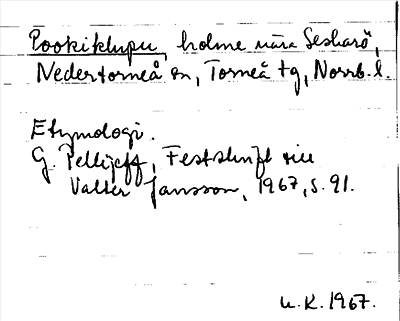 Pookiklupu, holme nära Seskarö,
Nedertorneå sn, Torneå tg, Norrb. l.
Etymologi.
G. Pellijeff, Festskrift till
Valter Jansson, 1967, s. 91.
U.K. 1967.